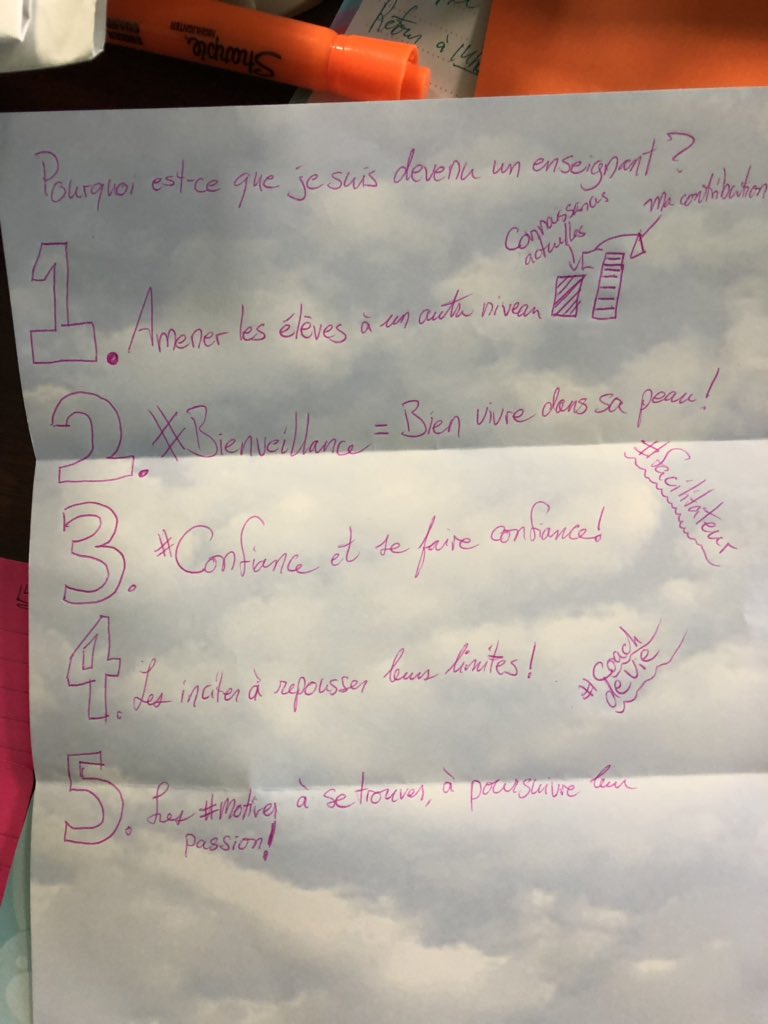 Sharpie
HIGHLIGHTER
Retour à
Pourquoi est-ce que je suis devenu un enseignant?
Connaissances
actuelles
ma contribution
1. Amener les élèves à un autre niveau
2. #Bienveillance = Bien vivre dans sa peau!
#facilitateur
3. #Confiance et se faire confiance!
4. Les inciter à repousser leurs limites!
#coach
de vie
5. Les #Motiver à se trouver, à poursuivre leur
passion!